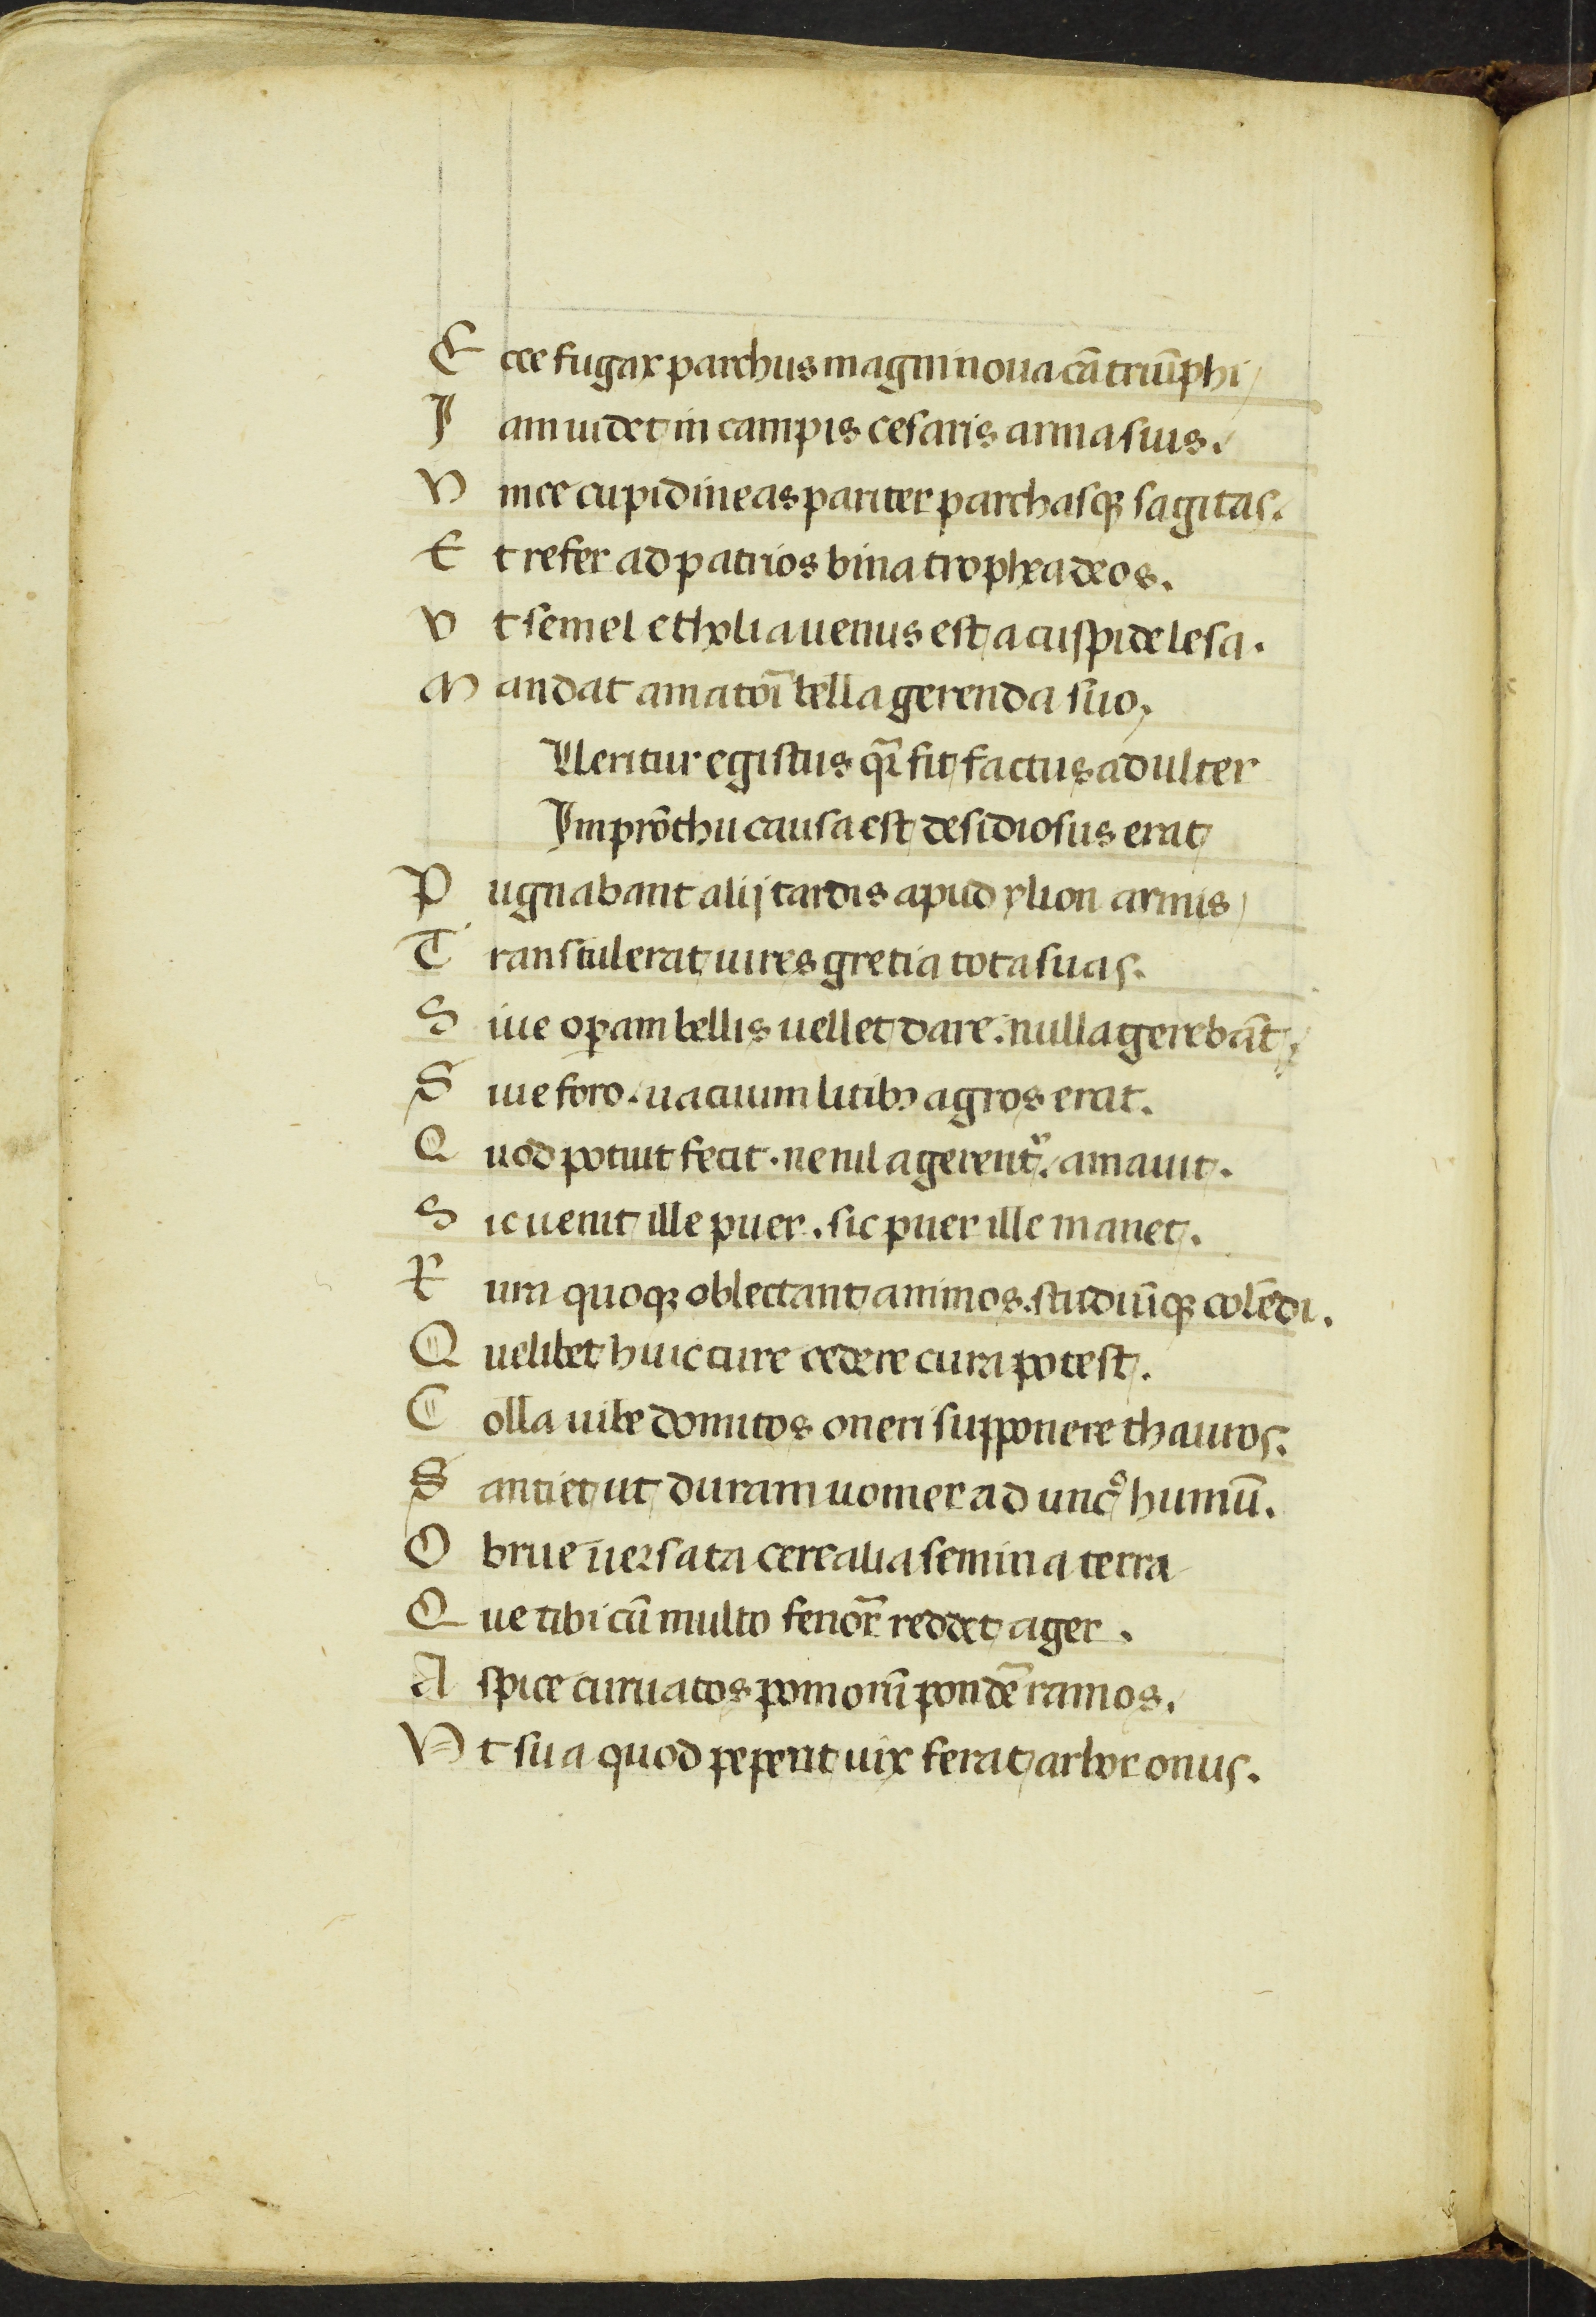 E cce fugax parthus magni noua cā triūphi
I am uidet in campis cesaris arma suis.
V ince cupidineas pariter parthasqꝫ sagitas.
E t refer ad patrios bina trophea deos.
V t semel etholia uenus est a cuspide lesa.
M andat amatori bella gerenda suo.
Ueritur egistus qr̄ sit factus adulter
Imprōthu causa est desidiosus erat
P ugnabant alij tardis apud ylion armis
T ranstulerat uires gretia tota suas.
S iue oꝑam bellis uellet dare. nulla gerebāt.
S iue foro. uacuum litibꝫ agros erat.
Q uod potuit fecit. ne nil agerent᷑. amauit.
S ic uenit ille puer. sic puer ille manet.
R ura quoqꝫ oblectant animos. studiūqꝫ colēdi.
Q uelibet huic cure cedere cura potest.
C olla uibe domitos oneri supponere thauros.
S antiet ut duram uomer ad uncꝰ humū.
O brue uersata cerealia semina terra
Q ue tibi cū multo fenor̄ reddet ager.
A spice curuatos pomorū pondē ramos.
V t sua quod peperit uix ferat arbor onus.